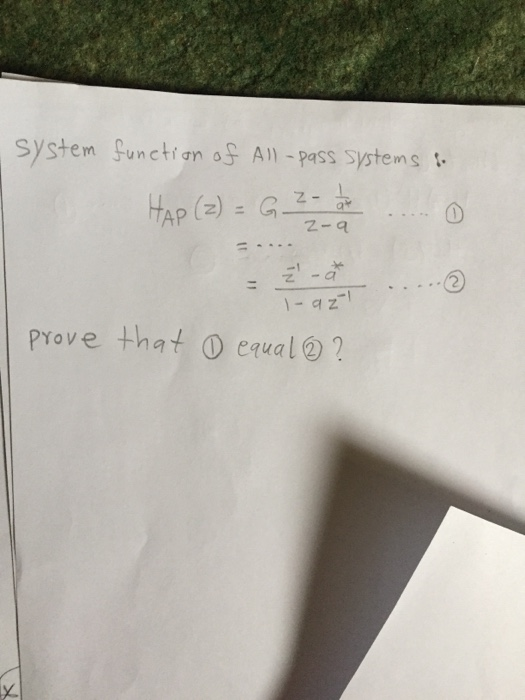 system function of All-pass systems :.
H_AP (z) = G (z - 1/a*) / (z - a) ..... ①
= ....
= (z^-1 - a*) / (1 - a z^-1) ..... ②
prove that ① equal ② ?
x